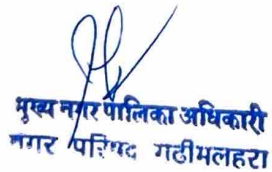 मुख्य नगर पालिका अधिकारी
नगर परिषद गढीमलहरा